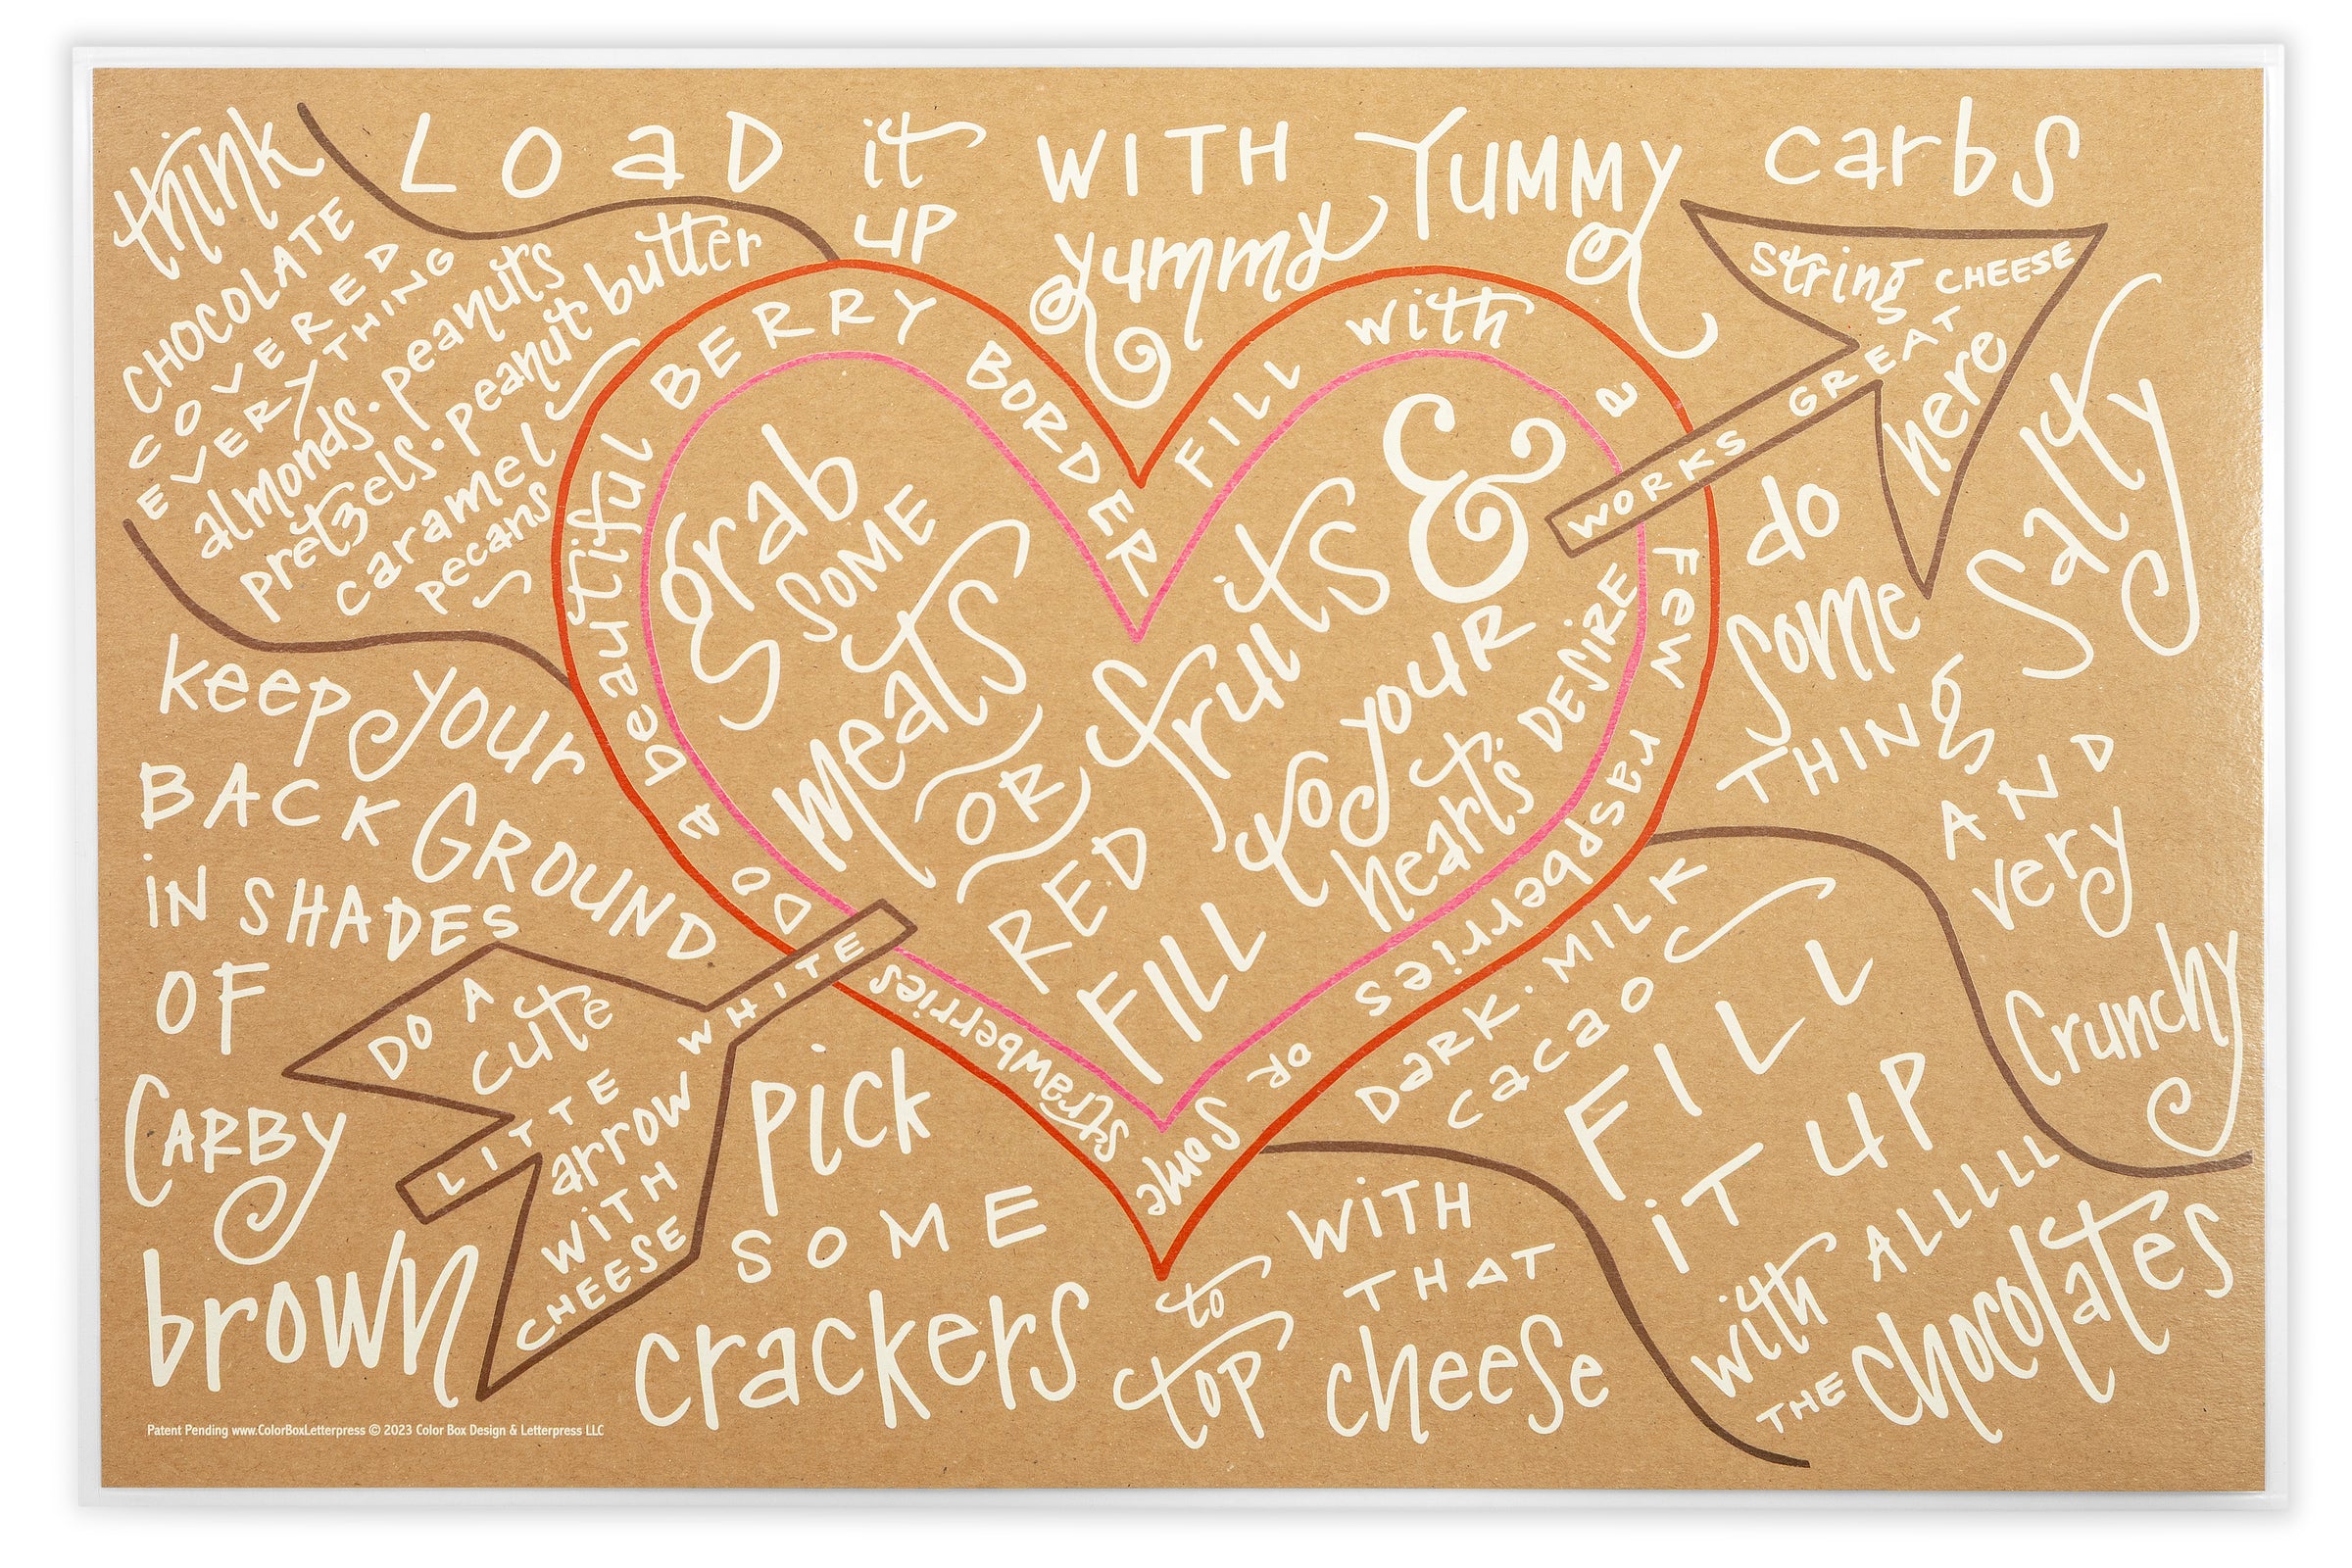 think
CHOCOLATE
COVERED
EVERYTHING
almonds · peanuts
pretzels · peanut butter
caramel
pecans
LOAD it UP WITH yummy YUMMY carbs
String CHEESE
WORKS GREAT
here
DO a beautiful BERRY BORDER
FILL with a few raspberries
OR Some strawberries
grab
SOME
meats
OR
RED
fruits
&
FILL
to your
heart's DESIRE
do
Some
THING
Salty
AND
very
Crunchy
keep your
BACKGROUND
iN SHADES
OF
CARBY
brown
DO A
cute
LITTE
arrow
WITH
CHEESE
WHITE
pick
SOME
crackers
to
top
WITH
THAT
cheese
Dark · MILK
cacao
FILL
iT UP
with ALLLLLL
THE chocolates
Patent Pending www.ColorBoxLetterpress © 2023 Color Box Design & Letterpress LLC